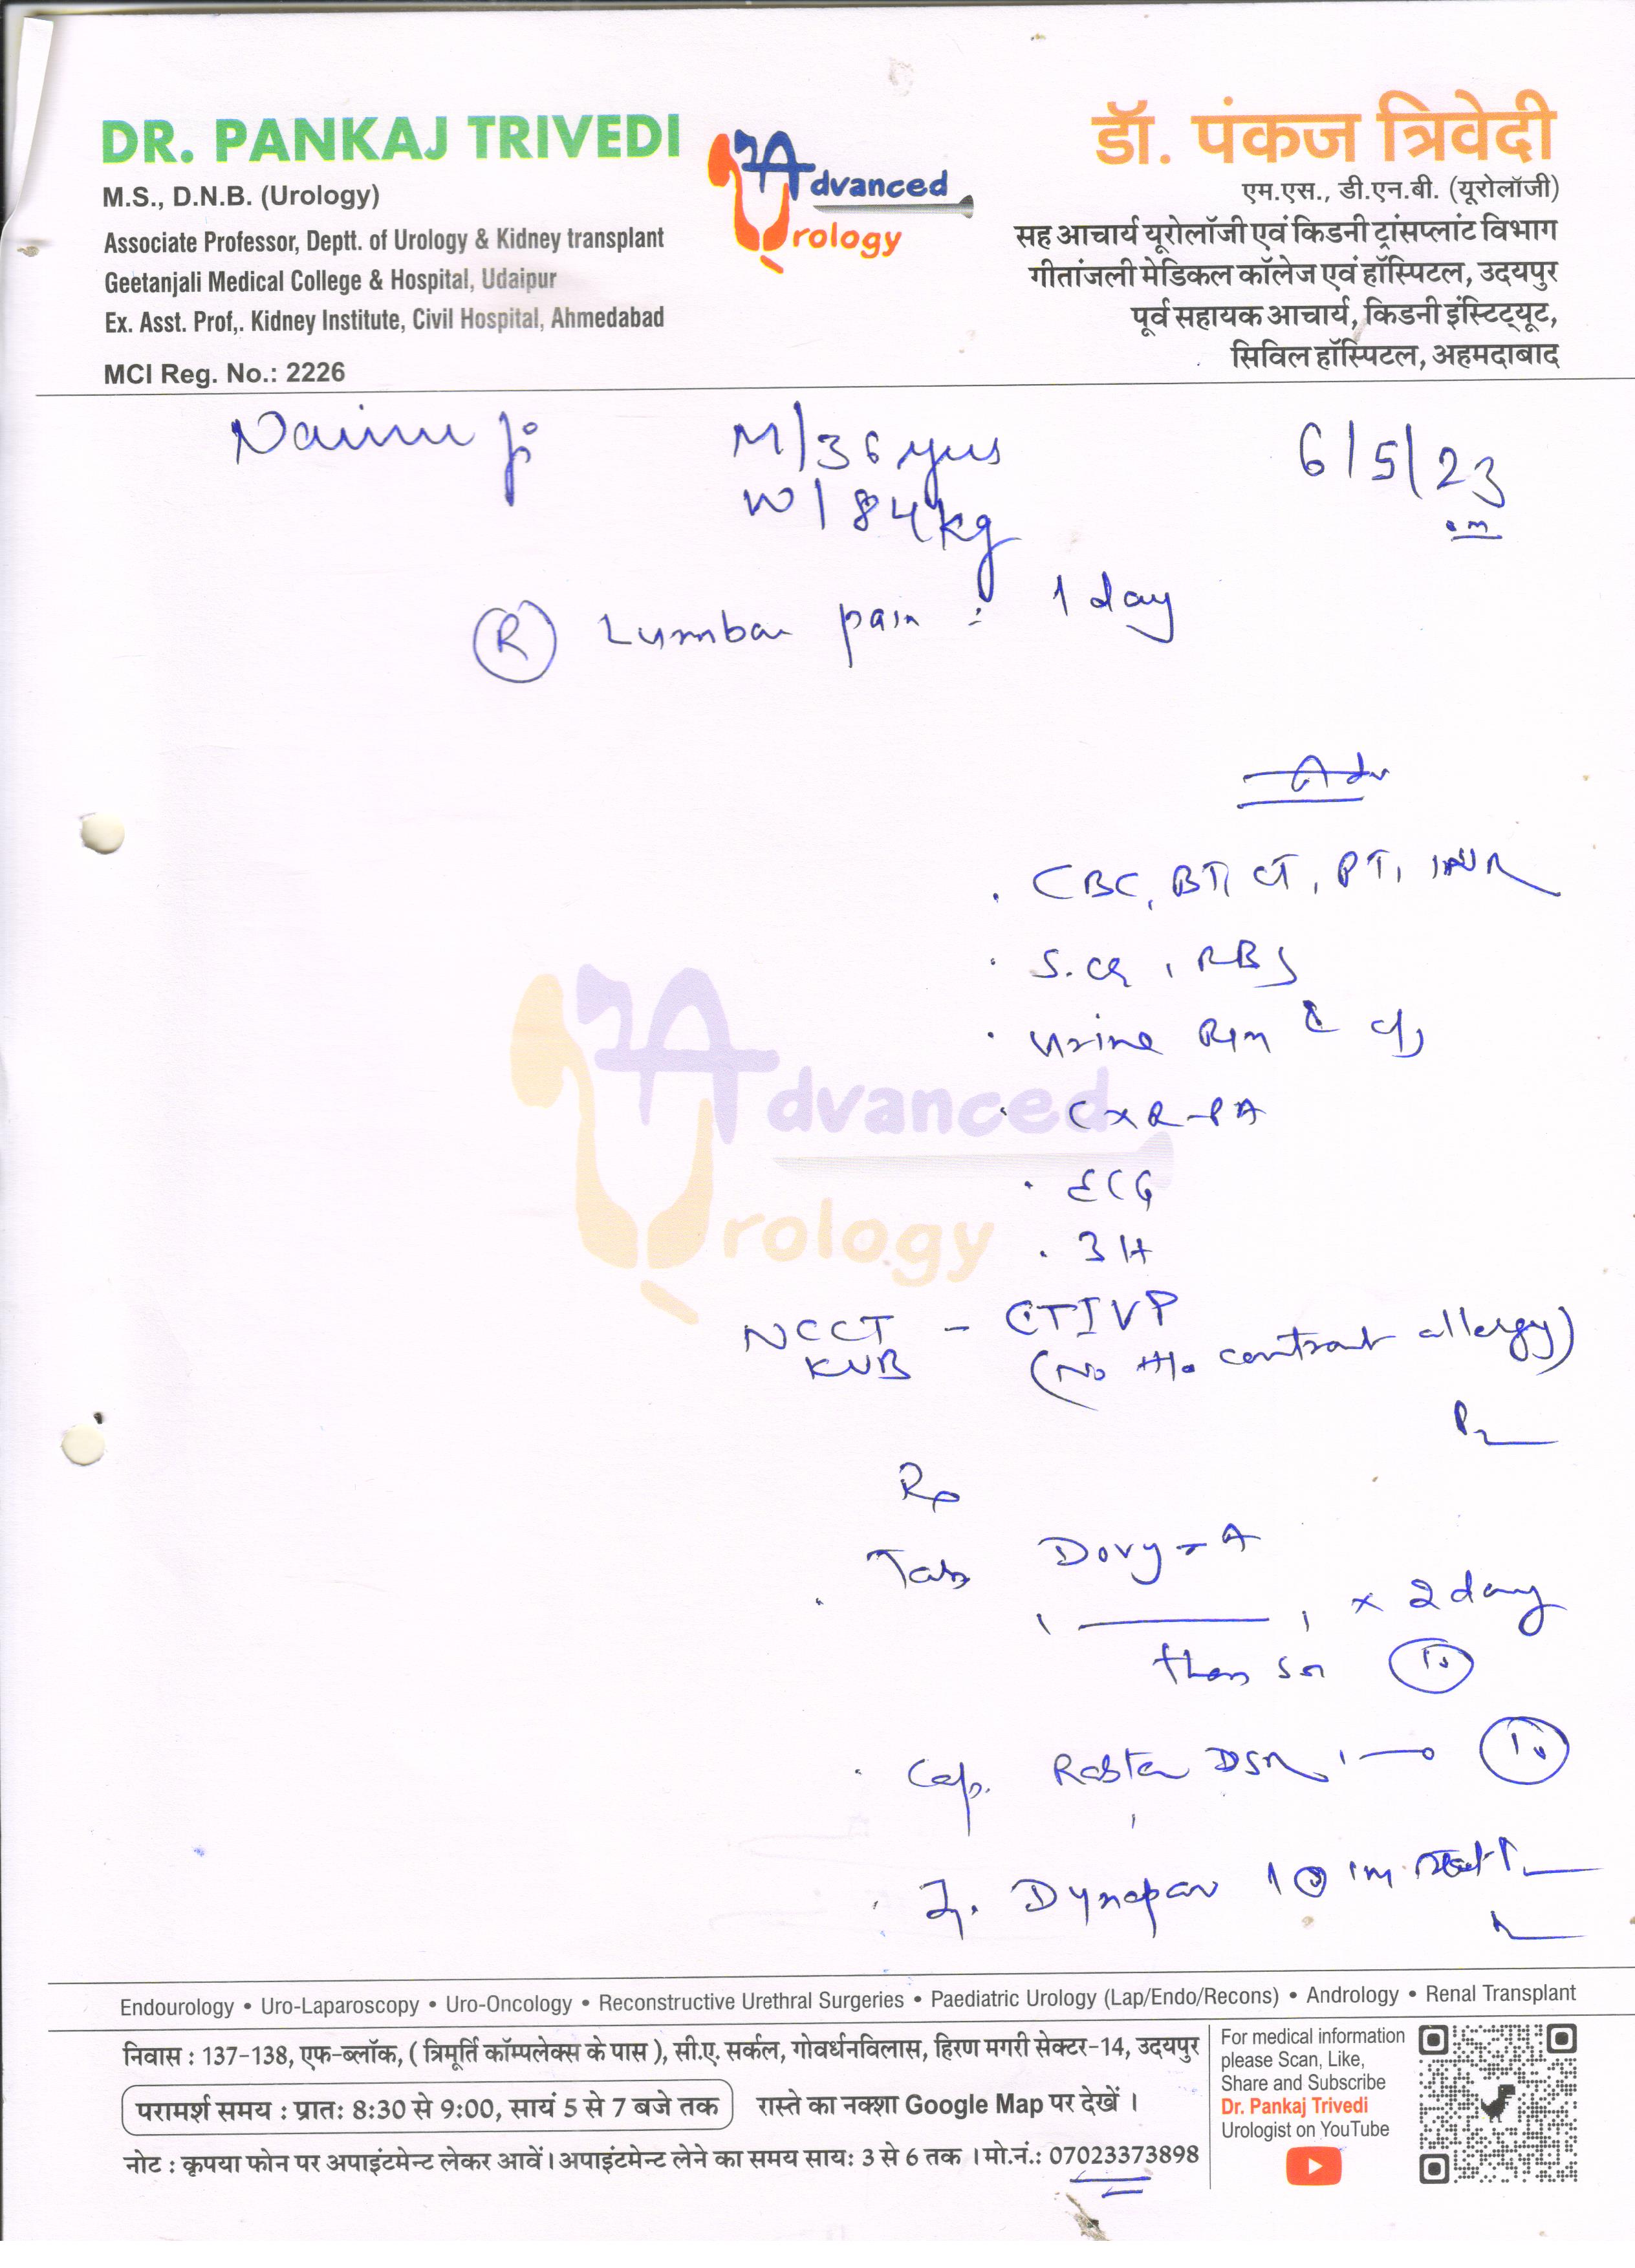 DR. PANKAJ TRIVEDI
M.S., D.N.B. (Urology)
Associate Professor, Deptt. of Urology & Kidney transplant
Geetanjali Medical College & Hospital, Udaipur
Ex. Asst. Prof,. Kidney Institute, Civil Hospital, Ahmedabad
MCI Reg. No.: 2226
Advanced
Urology
डॉ. पंकज त्रिवेदी
एम.एस., डी.एन.बी. (यूरोलॉजी)
सह आचार्य यूरोलॉजी एवं किडनी ट्रांसप्लांट विभाग
गीतांजली मेडिकल कॉलेज एवं हॉस्पिटल, उदयपुर
पूर्व सहायक आचार्य, किडनी इंस्टिट्यूट,
सिविल हॉस्पिटल, अहमदाबाद
M/36 yrs 6/5/23
W/84kg
(R) Lumbar pain : 1 day
Adv
. CBC, BT, CT, PT, INR
. S.Cr, RBS
. Urine R/M & C/S
. CXR-PA
. ECG
. 3H
NCCT - CTIVP
KUB (No H/o contrast allergy)
Advanced
Urology
Rp
. Tab 1 — 1 x 2 day
then SOS
. Cap. DSR 1—0
. Dynapar 1 im stat
Endourology • Uro-Laparoscopy • Uro-Oncology • Reconstructive Urethral Surgeries • Paediatric Urology (Lap/Endo/Recons) • Andrology • Renal Transplant
निवास : 137-138, एफ-ब्लॉक, ( त्रिमूर्ति कॉम्पलेक्स के पास ), सी.ए. सर्कल, गोवर्धनविलास, हिरण मगरी सेक्टर-14, उदयपुर
परामर्श समय : प्रातः 8:30 से 9:00, सायं 5 से 7 बजे तक रास्ते का नक्शा Google Map पर देखें ।
नोट : कृपया फोन पर अपाइंटमेन्ट लेकर आवें। अपाइंटमेन्ट लेने का समय सायः 3 से 6 तक । मो.नं.: 07023373898
For medical information
please Scan, Like,
Share and Subscribe
Dr. Pankaj Trivedi
Urologist on YouTube